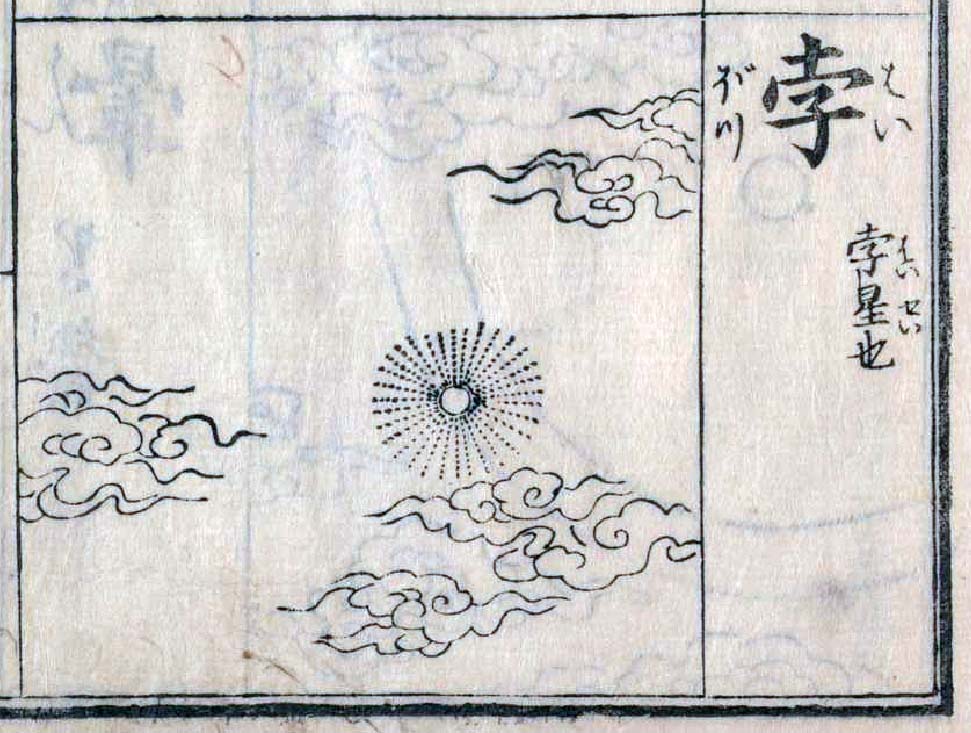 孛
はい
ぼつ
孛星也
はいせい